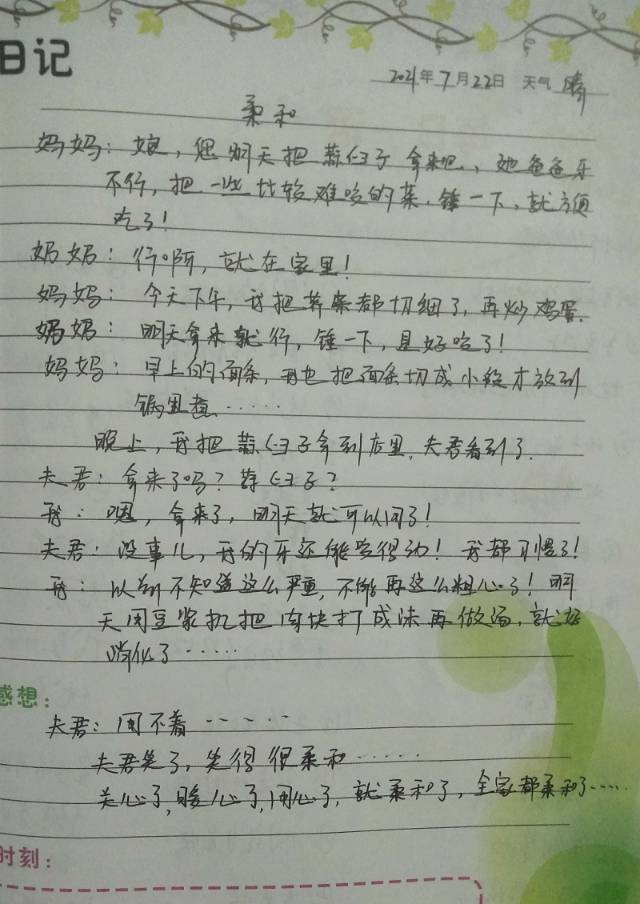 日记
2021年7月22日 天气 晴
柔和
妈妈：娘，您明天把蒜臼子拿来吧，她爸爸牙
不行，把一些比较难咬的菜，锤一下，就方便
吃了！
妈妈：行啊，就在家里！
妈妈：今天下午，我把荠菜都切细了，再炒鸡蛋。
妈妈：明天拿来就行，锤一下，是好咬了！
妈妈：早上的面条，我也把面条切成小段才放到
锅里煮……
晚上，我把蒜臼子拿到店里，夫君看到了。
夫君：拿来了吗？蒜臼子？
我：嗯，拿来了，明天就可以用了！
夫君：没事儿，我的牙还能咬得动！我都习惯了！
我：以前不知道这么严重，不能再这么粗心了！明
天用豆浆机把肉块打成沫再做汤，就好
消化了……
感想：
夫君：用不着……
夫君笑了，笑得很柔和……
关心了，暖心了，用心了，就柔和了，全家都柔和了……
时刻：